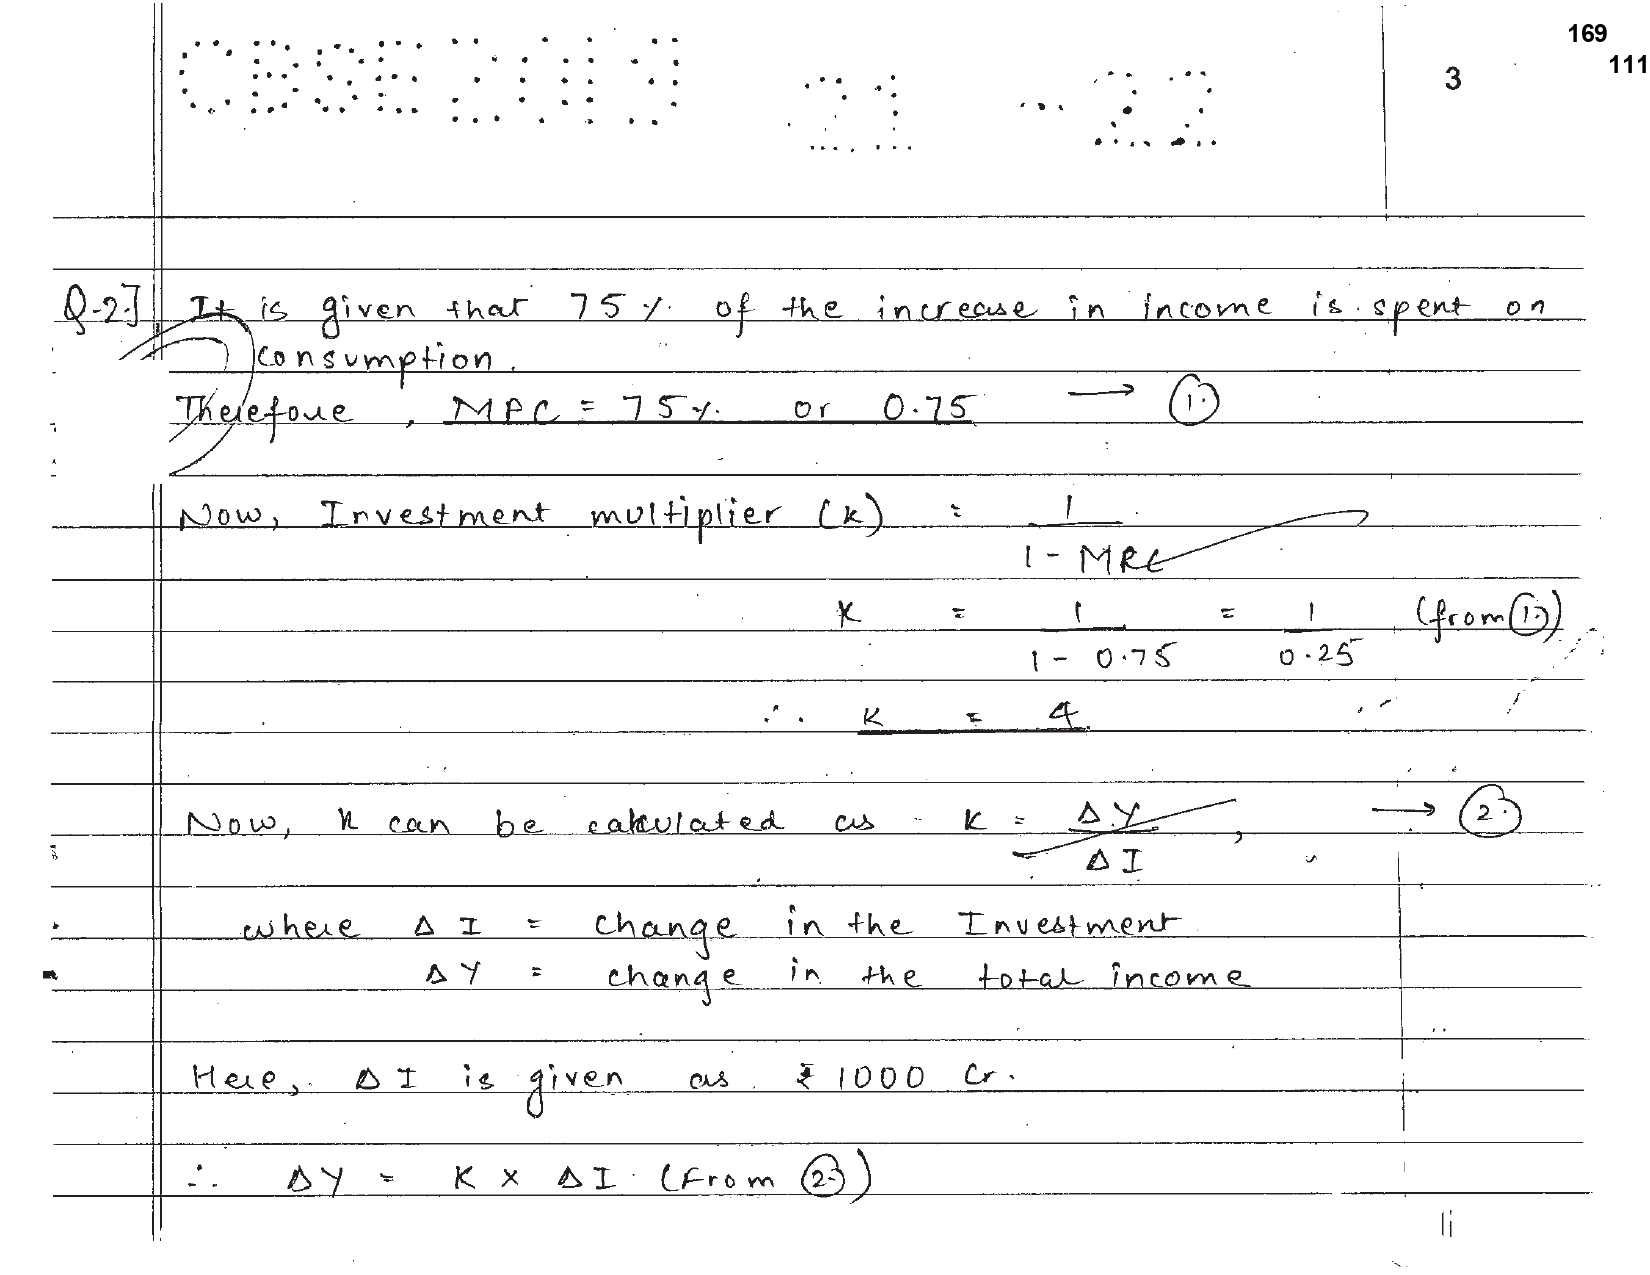 169
111
3
CBSE 2019 21 - 22
Q-2] It is given that 75 %. of the increase in income is spent on
consumption.
Therefore, MPC = 75%. or 0.75 → (1.)
Now, Investment multiplier (K) = 1
1 - MPC
K = 1 = 1 (from (1.))
1 - 0.75 0.25
∴ K = 4
Now, K can be calculated as K = ΔY, → (2.)
ΔI
where ΔI = change in the Investment
ΔY = change in the total income
Here, ΔI is given as ₹ 1000 Cr.
∴ ΔY = K × ΔI (From (2.))